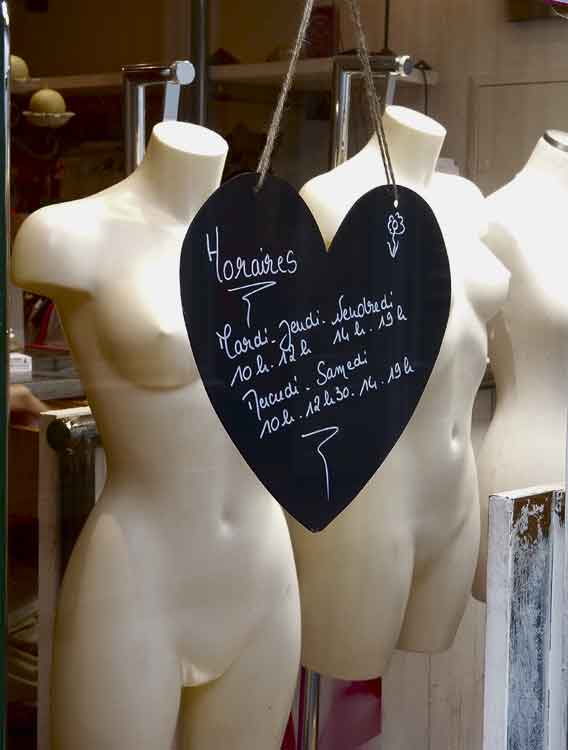 Horaires
Mardi - Jeudi - Vendredi
10 h . 12 h 14 h . 19 h
Mercredi - Samedi
10 h . 12 h 30 . 14 . 19 h